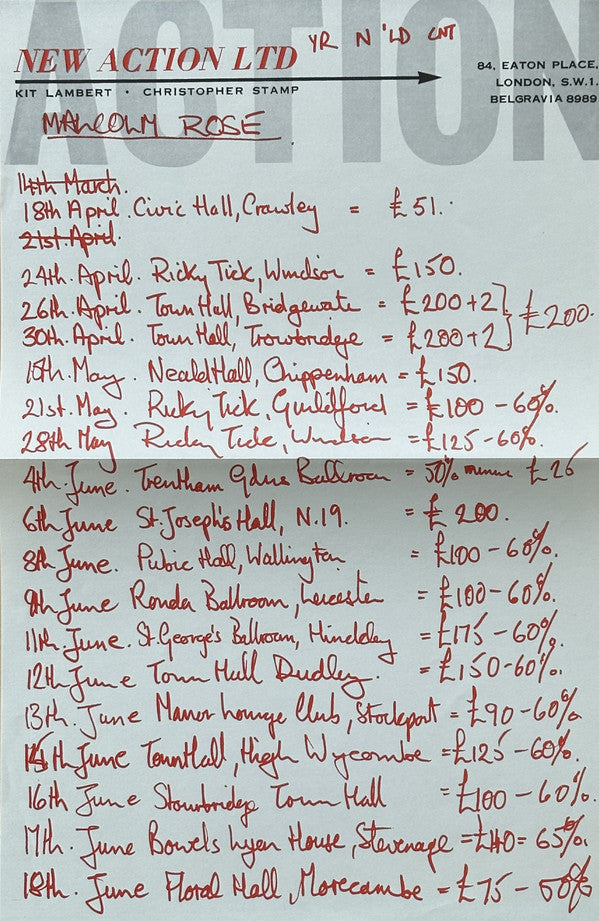 ACTION
YR N 'LD CNT
NEW ACTION LTD
KIT LAMBERT • CHRISTOPHER STAMP
84, EATON PLACE,
LONDON, S.W.1.
BELGRAVIA 8989
MALCOLM ROSE
14th March.
18th April. Civic Hall, Crawley = £51.
21st. April.
24th. April. Ricky Tick, Windsor = £150.
26th. April. Town Hall, Bridgewate = £200+2 } £200.
30th. April. Town Hall, Trowbridge = £200+2
15th. May. Neald Hall, Chippenham = £150.
21st. May. Ricky Tick, Guildford = £100 - 60%.
28th May Ricky Tick, Windsor = £125 - 60%.
4th. June. Trentham Gdns Ballroom = 50% minus £25
6th June St. Joseph's Hall, N.19. = £200.
8th June. Pubic Hall, Wallington = £100 - 60%.
9th June Ronda Ballroom, Leicester = £100 - 60%.
11th. June. St. George's Ballroom, Hinckley = £175 - 60%.
12th June Town Hall Dudley. = £150 - 60%.
13th. June Manor Lounge Club, Stockport = £90 - 60%
14th June Town Hall, High Wycombe = £125 - 60%.
16th June Stourbridge Town Hall = £100 - 60%.
17th. June Bowes Lyon House, Stevenage = £140 = 65%.
18th. June Floral Hall, Morecambe = £75 - 50%